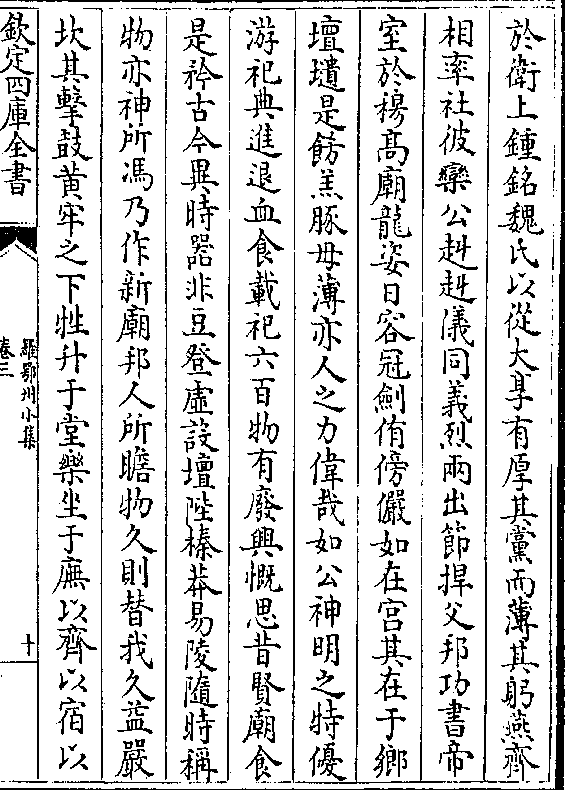 於衛上鍾銘魏氏以從大享有厚其黨而薄其躬燕齊
相率社彼欒公赳赳儀同義烈兩出節捍父邦功書帝
室於穆髙廟龍姿日容冠劍侑傍儼如在宫其在于鄉
壇壝是飭羔豚毋薄亦人之力偉哉如公神明之特優
游祀典進退血食載祀六百物有廢興慨思昔賢廟食
是矜古今異時器非豆登虛設壇陛榛莽易陵隨時稱
物亦神所馮乃作新廟邦人所瞻物久則替我久益嚴
坎其擊鼓黄牢之下牲升于堂樂坐于廡以齊以宿以
欽定四庫全書
羅鄂州小集
卷三
十